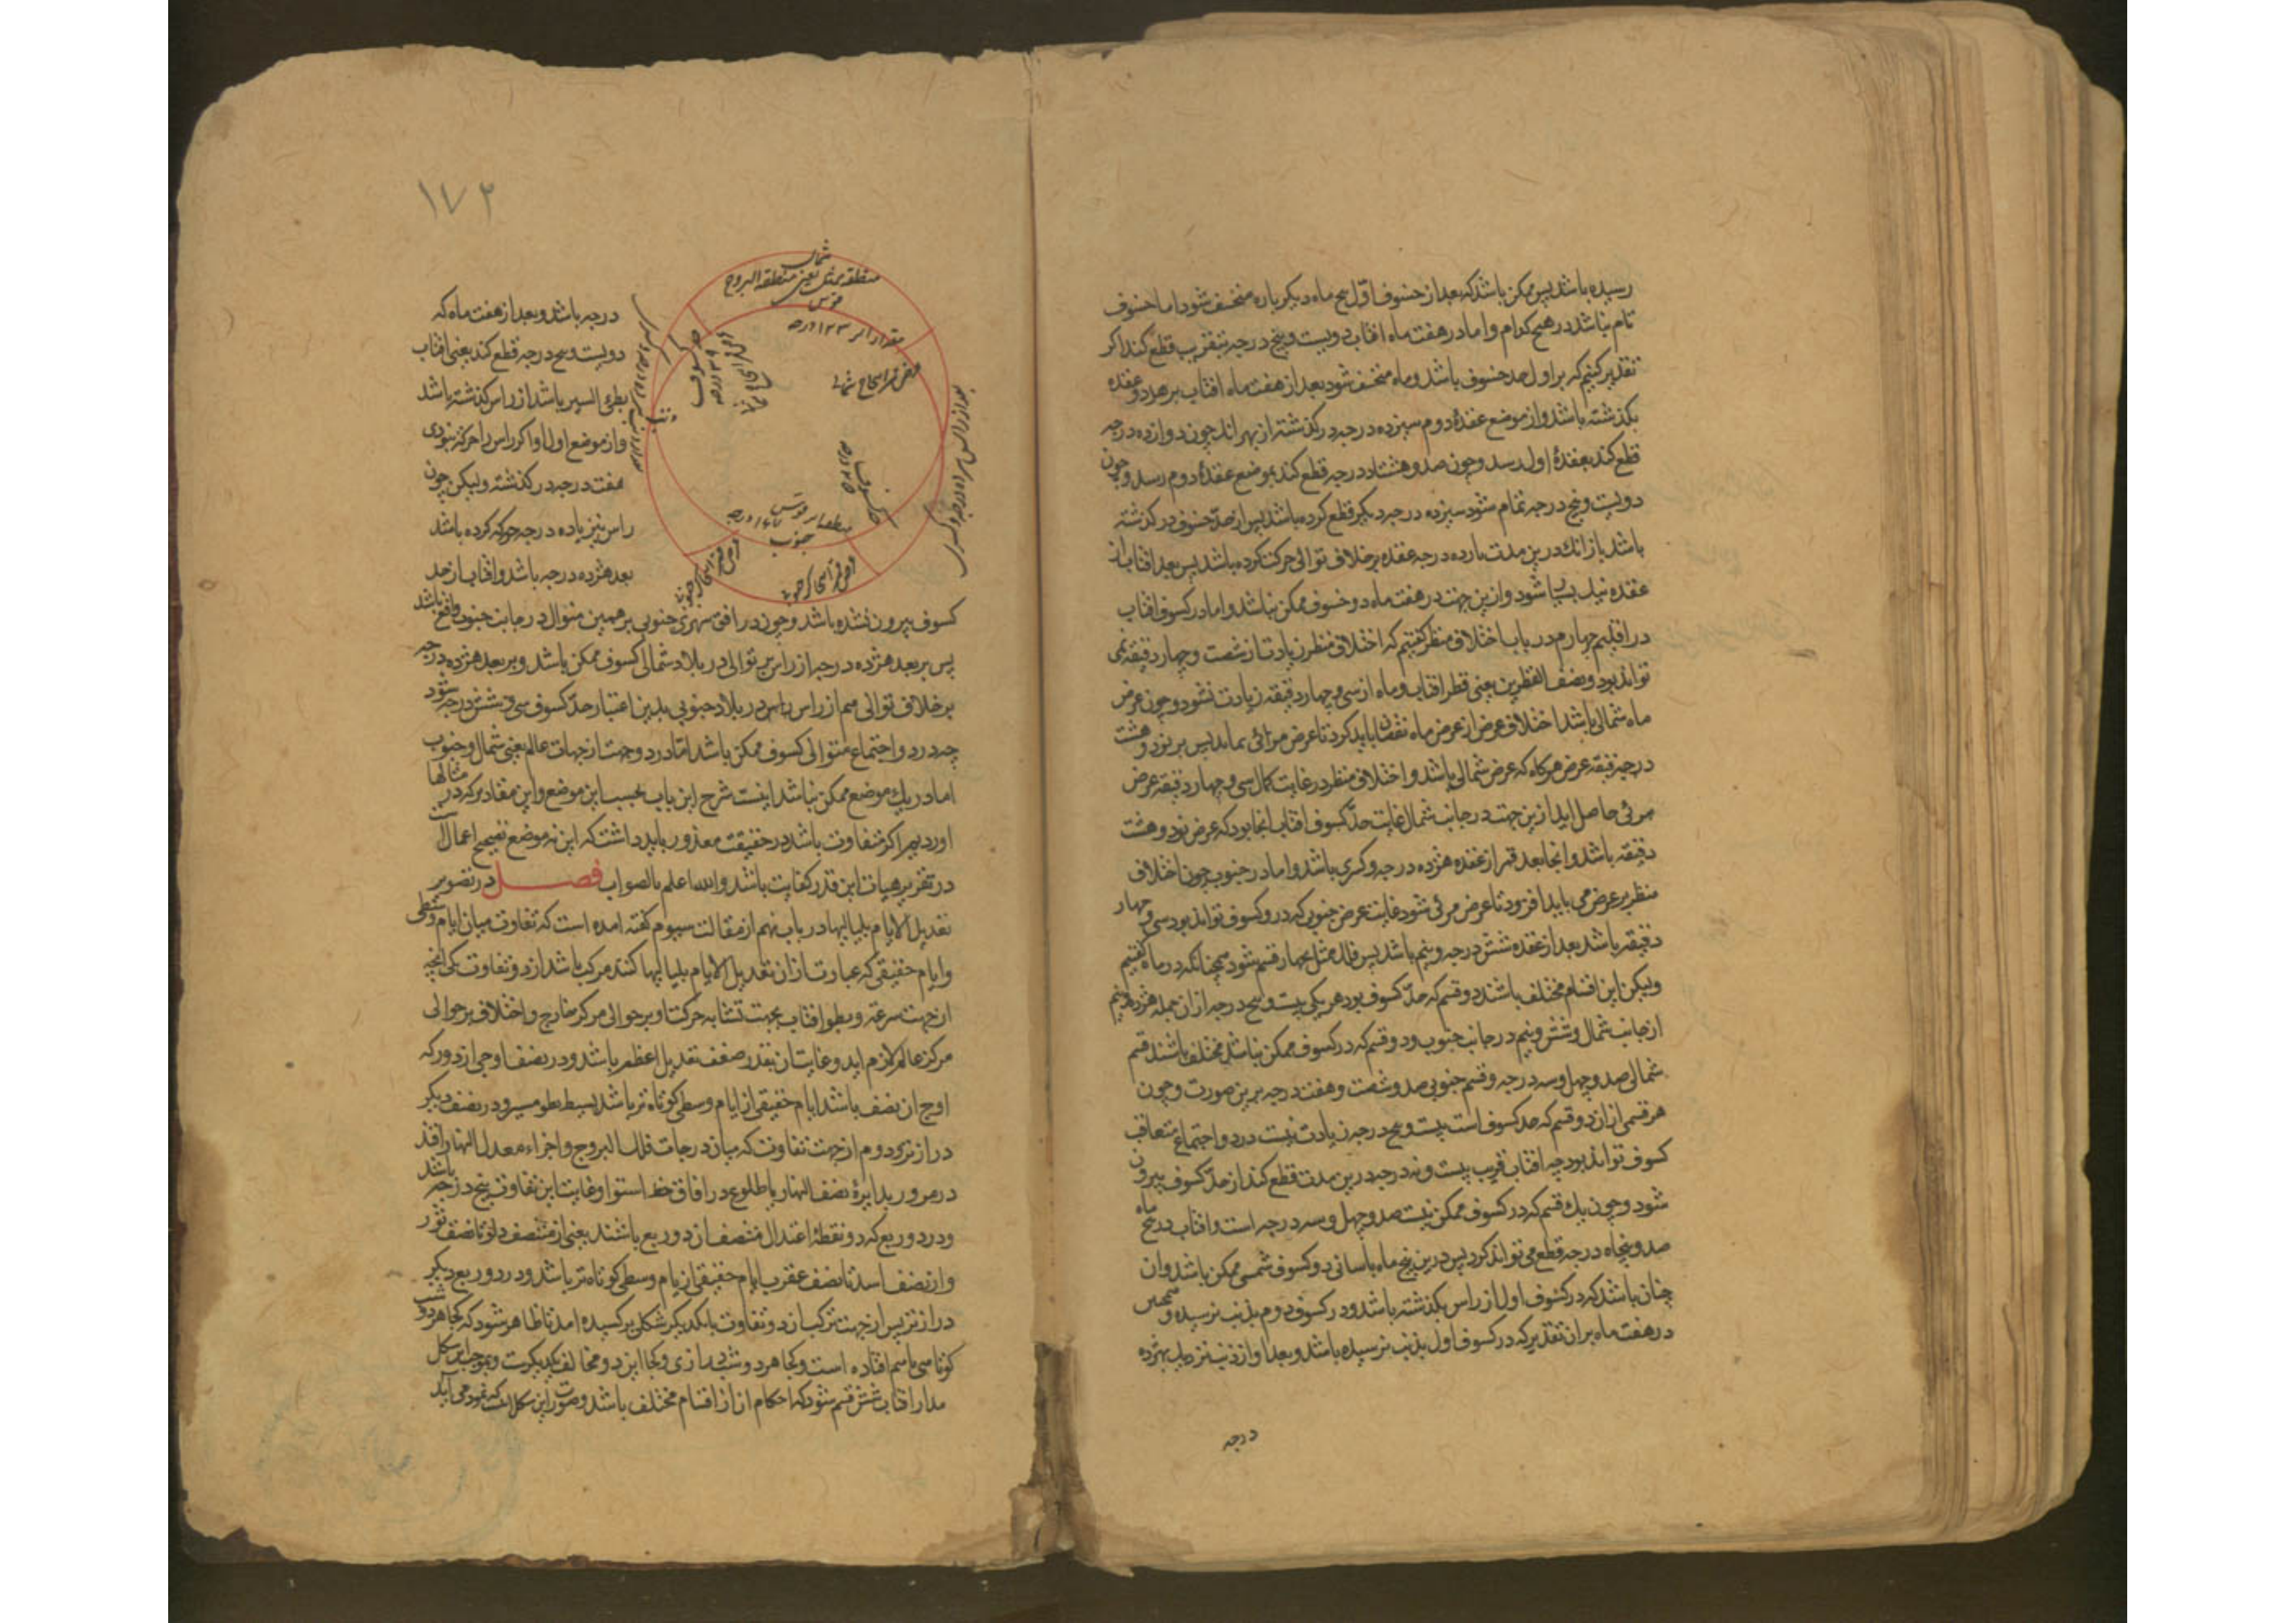 رسیده باشد پس ممکن باشد که بعد از خسوف اول پنج ماه دیکر باره منخسف شود اما خسوف
تام نباشد در هیچ کدام و اما در هفت ماه افتاب دویست و پنج درجه بتقریب قطع کند اکر
تقدیر کنیم که بر اول حد خسوف باشد و ماه منخسف شود بعد از هفت ماه افتاب بر هر دو عقده
بکذشته باشد و از موضع عقدهٔ دوم سیزده درجه در کذشته از بهر انک چون دوازده درجه
قطع کند بعقدهٔ اول رسد و چون صد و هشتاد درجه قطع کند بموضع عقدهٔ دوم رسد و چون
دویست و پنج درجه تمام شود سیزده درجه دیکر قطع کرده باشد پس از حد خسوف در کذشته
باشد باز انک درین مدت یازده درجه عقده بر خلاف توالی حرکت کرده باشد پس بعد افتاب از
عقده نیک بسیار شود و ازین جهت در هفت ماه دو خسوف ممکن نباشد و اما در کسوف افتاب
در اقلیم چهارم در باب اختلاف منظر کفتیم که اختلاف منظر زیادت از شصت و چهار دقیقه نمی
تواند بود و نصف القطرین یعنی قطر افتاب و ماه از سی و چهار دقیقه زیادت نشود و چون عرض
ماه شمالی باشد اختلاف عرض از عرض ماه نقصان باید کرد تا عرض مرائی بماند پس بر نود و هشت
درجه دقیقه عرض هر کاه که عرض شمالی باشد و اختلاف منظر در غایت کمال سی و چهار دقیقه عرض
مرئی حاصل اید ازین جهت در جانب شمال غایت حد کسوف افتاب انجا بود که عرض نود و هشت
دقیقه باشد و انجا بعد قمر از عقده هژده درجه و کسری باشد و اما در جنوب چون اختلاف
منظر بر عرض می باید افزود تا عرض مرئی شود غایت عرض جنوبی که درو کسوف تواند بود سی و چهار
دقیقه باشد بعد از عقده شش درجه و نیم باشد پس فلک ممثل بچهار قسم شود همچنانکه در ماه کفتیم
ولیکن این اقسام مختلف باشند دو قسم که حد کسوف بود هر یکی بیست و پنج درجه از ان جمله هژده و نیم
از جانب شمال و شش و نیم در جانب جنوب و دو قسم که در کسوف ممکن نباشد مختلف باشند قسم
شمالی صد و چهل و سه درجه و قسم جنوبی صد و شصت و هفت درجه برین صورت و چون
هر قسمی از ان دو قسم که حد کسوف است بیست و پنج درجه زیادت نیست در دو اجتماع متعاقب
کسوف تواند بود چه افتاب قریب بیست و نه درجه درین مدت قطع کند از حد کسوف بیرون
شود و چون یک قسم که در کسوف ممکن نیست صد و چهل و سه درجه است و افتاب در پنج ماه
صد و پنجاه درجه قطع می تواند کرد پس درین پنج ماه باسانی دو کسوف شمسی ممکن باشد و ان
چنان باشد که در کسوف اول از راس بکذشته باشد و در کسوف دوم بذنب نرسیده و همچنین
در هفت ماه بران تقدیر که در کسوف اول بذنب نرسیده باشد و بعد او از ذنب نزدیک بهژده
درجه
١٧٢
شمال
منطقه ممثل یعنی منطقة البروج
قوس
ذنب
حد کسوف
جنوب
درجه باشد و بعد از هفت ماه که
دویست و پنج درجه قطع کند یعنی افتاب
بطیء السیر باشد از راس کذشته باشد
و از موضع اول او اکر راس را حرکة نبودی
هفت درجه در کذشته ولیکن چون
راس نیز یاده درجه حرکة کرده باشد
بعد هژده درجه باشد و افتاب از حد
کسوف بیرون نشده باشد و چون در افق شهری جنوبی بر همین منوال در جانب جنوب واقع باشد
پس بر بعد هژده درجه از راس بر توالی در بلاد شمالی کسوف ممکن باشد و بر بعد هژده درجه
بر خلاف توالی هم از راس در بلاد جنوبی بدین اعتبار حد کسوف سی و شش درجه شود
چه در دو اجتماع متوالی کسوف ممکن باشد اما در دو جهت از جهات عالم یعنی شمال و جنوب
اما در یک موضع ممکن نباشد اینست شرح این باب بحسب این موضع و این مقادیر که در مثالها
اوردیم اکر متفاوت باشد در حقیقت معذور باید داشت که این نه موضع تصحیح اعمال است
در تقریر هیات این قدر کفایت باشد والله اعلم بالصواب فصل در تصویر
تعدیل الایام بلیالیها در باب نهم از مقالت سیوم کفته امده است که تفاوت میان ایام وسطی
و ایام حقیقی که عبارت از ان تعدیل الایام بلیالیها کنند مرکب باشد از دو تفاوت یکی انچه
از جهت سرعة و بطو افتاب بجهت تشابه حرکت او بر حوالی مرکز خارج و اختلاف بر حوالی
مرکز عالم لازم اید و غایت ان بقدر ضعف تعدیل اعظم باشد و در نصف اوجی از دور که
اوج ان نصف باشد ایام حقیقی از ایام وسطی کوتاه تر باشد بسبب بطو سیر و در نصف دیکر
دراز تر و دوم از جهت تفاوت که میان درجات فلک البروج و اجزاء معدل النهار افتد
در مرور بدایرهٔ نصف النهار یا طلوع در افاق خط استوا و غایت این تفاوت پنج درجه باشد
و در دو ربع که دو نقطهٔ اعتدال منتصف ان دو ربع باشند یعنی از منتصف دلو تا نصف ثور
و از نصف اسد تا نصف عقرب ایام حقیقی از ایام وسطی کوتاه تر باشد و در دو ربع دیکر
دراز تر پس از جهت ترکب از دو تفاوت با یکدیکر شکلی بر کسیده امد تا ظاهر شود که کجا هر دو شب
کوتاهی با هم افتاده است و کجا هر دو شب درازی و کجا این دو مخالف یکدیکرست و بموجب این شکل
مدار افتاب شش قسم شود که احکام از ان اقسام مختلف باشد و صورت این شکل است که نموده می آید